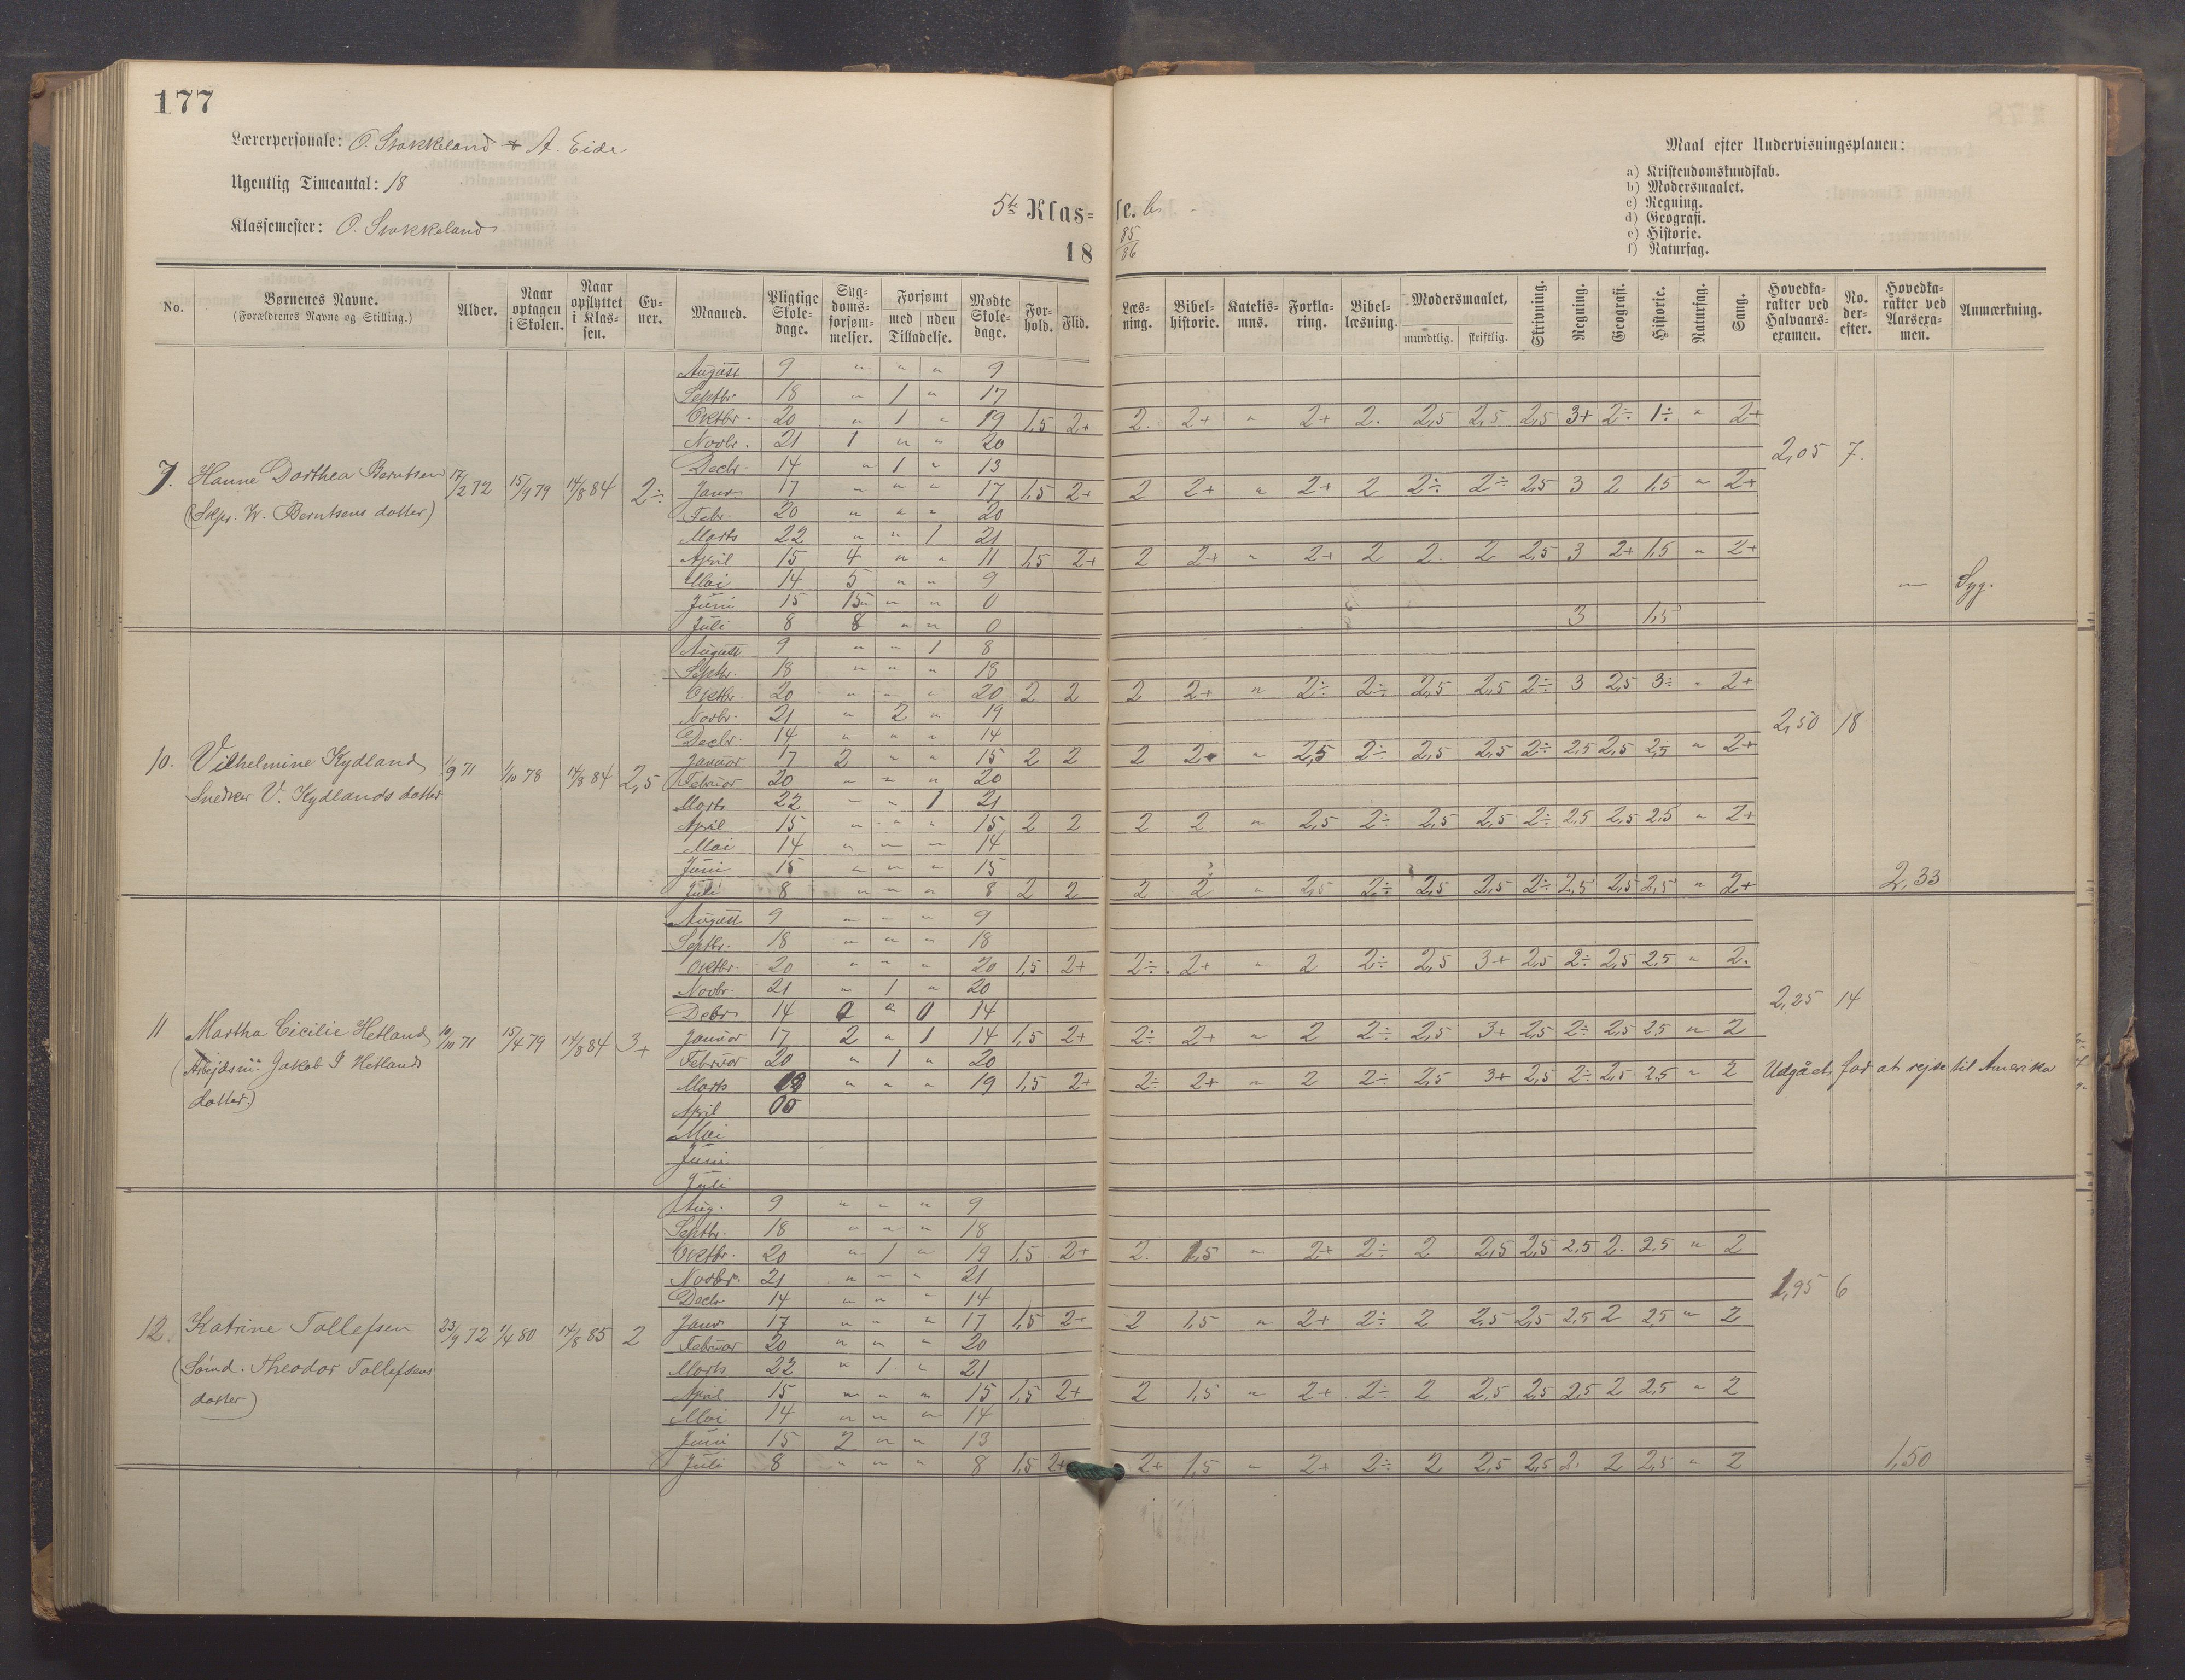 177
Lærerpersonale: O. Stokkeland & A. Eide
Ugentlig Timeantal: 18
Klassemester: O. Stokkeland
5te Klas=
se. b.
18
85/86
Maal efter Undervisningsplanen:
a) Kristendomskundskab.
b) Modersmaalet.
c) Regning.
d) Geografi.
e) Historie.
f) Naturfag.
No. | Børnenes Navne. (Forældrenes Navne og Stilling.) | Alder. | Naar optagen i Skolen. | Naar opflyttet i Klassen. | Evner. | Maaned. | Pligtige Skoledage. | Sygdomsforsømmelser. | Forsømt med uden Tilladelse. | Mødte Skoledage. | Forhold. | Flid. | Læsning. | Bibelhistorie. | Katekismus. | Forklaring. | Bibellæsning. | Modersmaalet, mundtlig. skriftlig. | Skrivning. | Regning. | Geografi. | Historie. | Naturfag. | Sang. | Hovedkarakter ved Halvaarsexamen. | No. derefter. | Hovedkarakter ved Aarsexamen. | Anmærkning.
August 9 " " " 9
Septbr. 18 " 1 " 17
Oktbr. 20 " 1 " 19 1,5 2+ 2. 2+ " 2+ 2. 2,5 2,5 2,5 3+ 2÷ 1÷ " 2+
Novbr. 21 1 " " 20
2,05 7.
Decbr. 14 " 1 " 13
9. Hanne Dorthea Berntsen 17/2 72 15/9 79 14/8 84 2÷
(Skpr. W. Berntsens datter)
Janr. 17 " " " 17 1,5 2+ 2 2+ " 2+ 2 2÷ 2÷ 2,5 3 2 1,5 " 2+
Febr. 20 " " " 20
Marts 22 " " 1 21
April 15 4 " " 11 1,5 2+ 2 2+ " 2+ 2 2. 2 2,5 3 2+ 1,5 " 2+
Mai 14 5 " " 9
" Syg.
Juni 15 15 " " 0
Juli 8 8 " " 0 3 1,5
August 9 " " 1 8
Septbr. 18 " " " 18
Oktbr. 20 " " " 20 2 2 2 2+ " 2÷ 2÷ 2,5 2,5 2÷ 3 2,5 3÷ " 2+
Novbr. 21 " 2 " 19
2,50 18
Decbr. 14 " " " 14
10. Vilhelmine Kydland 1/9 71 1/10 78 14/8 84 2,5
Snedker V. Kydlands datter
Januar 17 2 " " 15 2 2 2 2 " 2,5 2÷ 2,5 2,5 2÷ 2,5 2,5 2,5 " 2+
Februar 20 " " " 20
Marts 22 " " 1 21
April 15 " " " 15 2 2 2 2 " 2,5 2÷ 2,5 2,5 2÷ 2,5 2,5 2,5 " 2+
Mai 14 " " " 14
Juni 15 " " " 15
Juli 8 " " " 8 2 2 2 2 " 2,5 2÷ 2,5 2,5 2÷ 2,5 2,5 2,5 " 2+ 2,33
August 9 " " " 9
Septbr. 18 " " " 18
Oktbr. 20 " " " 20 1,5 2+ 2÷ 2+ " 2 2÷ 2,5 3+ 2,5 2÷ 2,5 2,5 " 2.
Novbr. 21 " 1 " 20
2,25 14
Debr. 14 0 " 0 14
11 Martha Cicilie Hetland 10/10 71 15/4 79 14/8 84 3+
(Arbejdsm. Jakob I Hetlands
datter.)
Januar 17 2 " 1 14 1,5 2+ 2÷ 2+ " 2 2÷ 2,5 3+ 2,5 2÷ 2,5 2,5 " 2
Februar 20 " 1 " 20
Marts " " " 19 1,5 2+ 2÷ 2+ " 2 2÷ 2,5 3+ 2,5 2÷ 2,5 2,5 " 2 Udgået for at rejse til Amerika
April 00
Mai
Juni
Juli
Aug. 9 " " " 9
Septbr. 18 " " " 18
Oktbr. 20 " 1 " 19 1,5 2+ 2. 1,5 " 2+ 2÷ 2 2,5 2,5 2,5 2. 2,5 " 2
Novbr. 21 " " " 21
1,95 6
Decbr 14 " " " 14
12. Katrine Tollefsen 23/9 72 1/4 80 14/8 85 2
(Sømd. Theodor Tollefsens
datter)
Janr. 17 " " " 17 1,5 2+ 2 1,5 " 2+ 2÷ 2 2,5 2,5 2,5 2 2,5 " 2
Februar 20 " " " 20
Marts 22 " 1 " 21
April 15 " " " 15 1,5 2+ 2 1,5 " 2+ 2÷ 2 2,5 2,5 2,5 2 2,5 " 2
Mai 14 " " " 14
Juni 15 2 " " 13
Juli 8 " " " 8 1,5 2+ 2+ 1,5 " 2+ 2÷ 2 2,5 2,5 2. 2 2,5 " 2 1,50